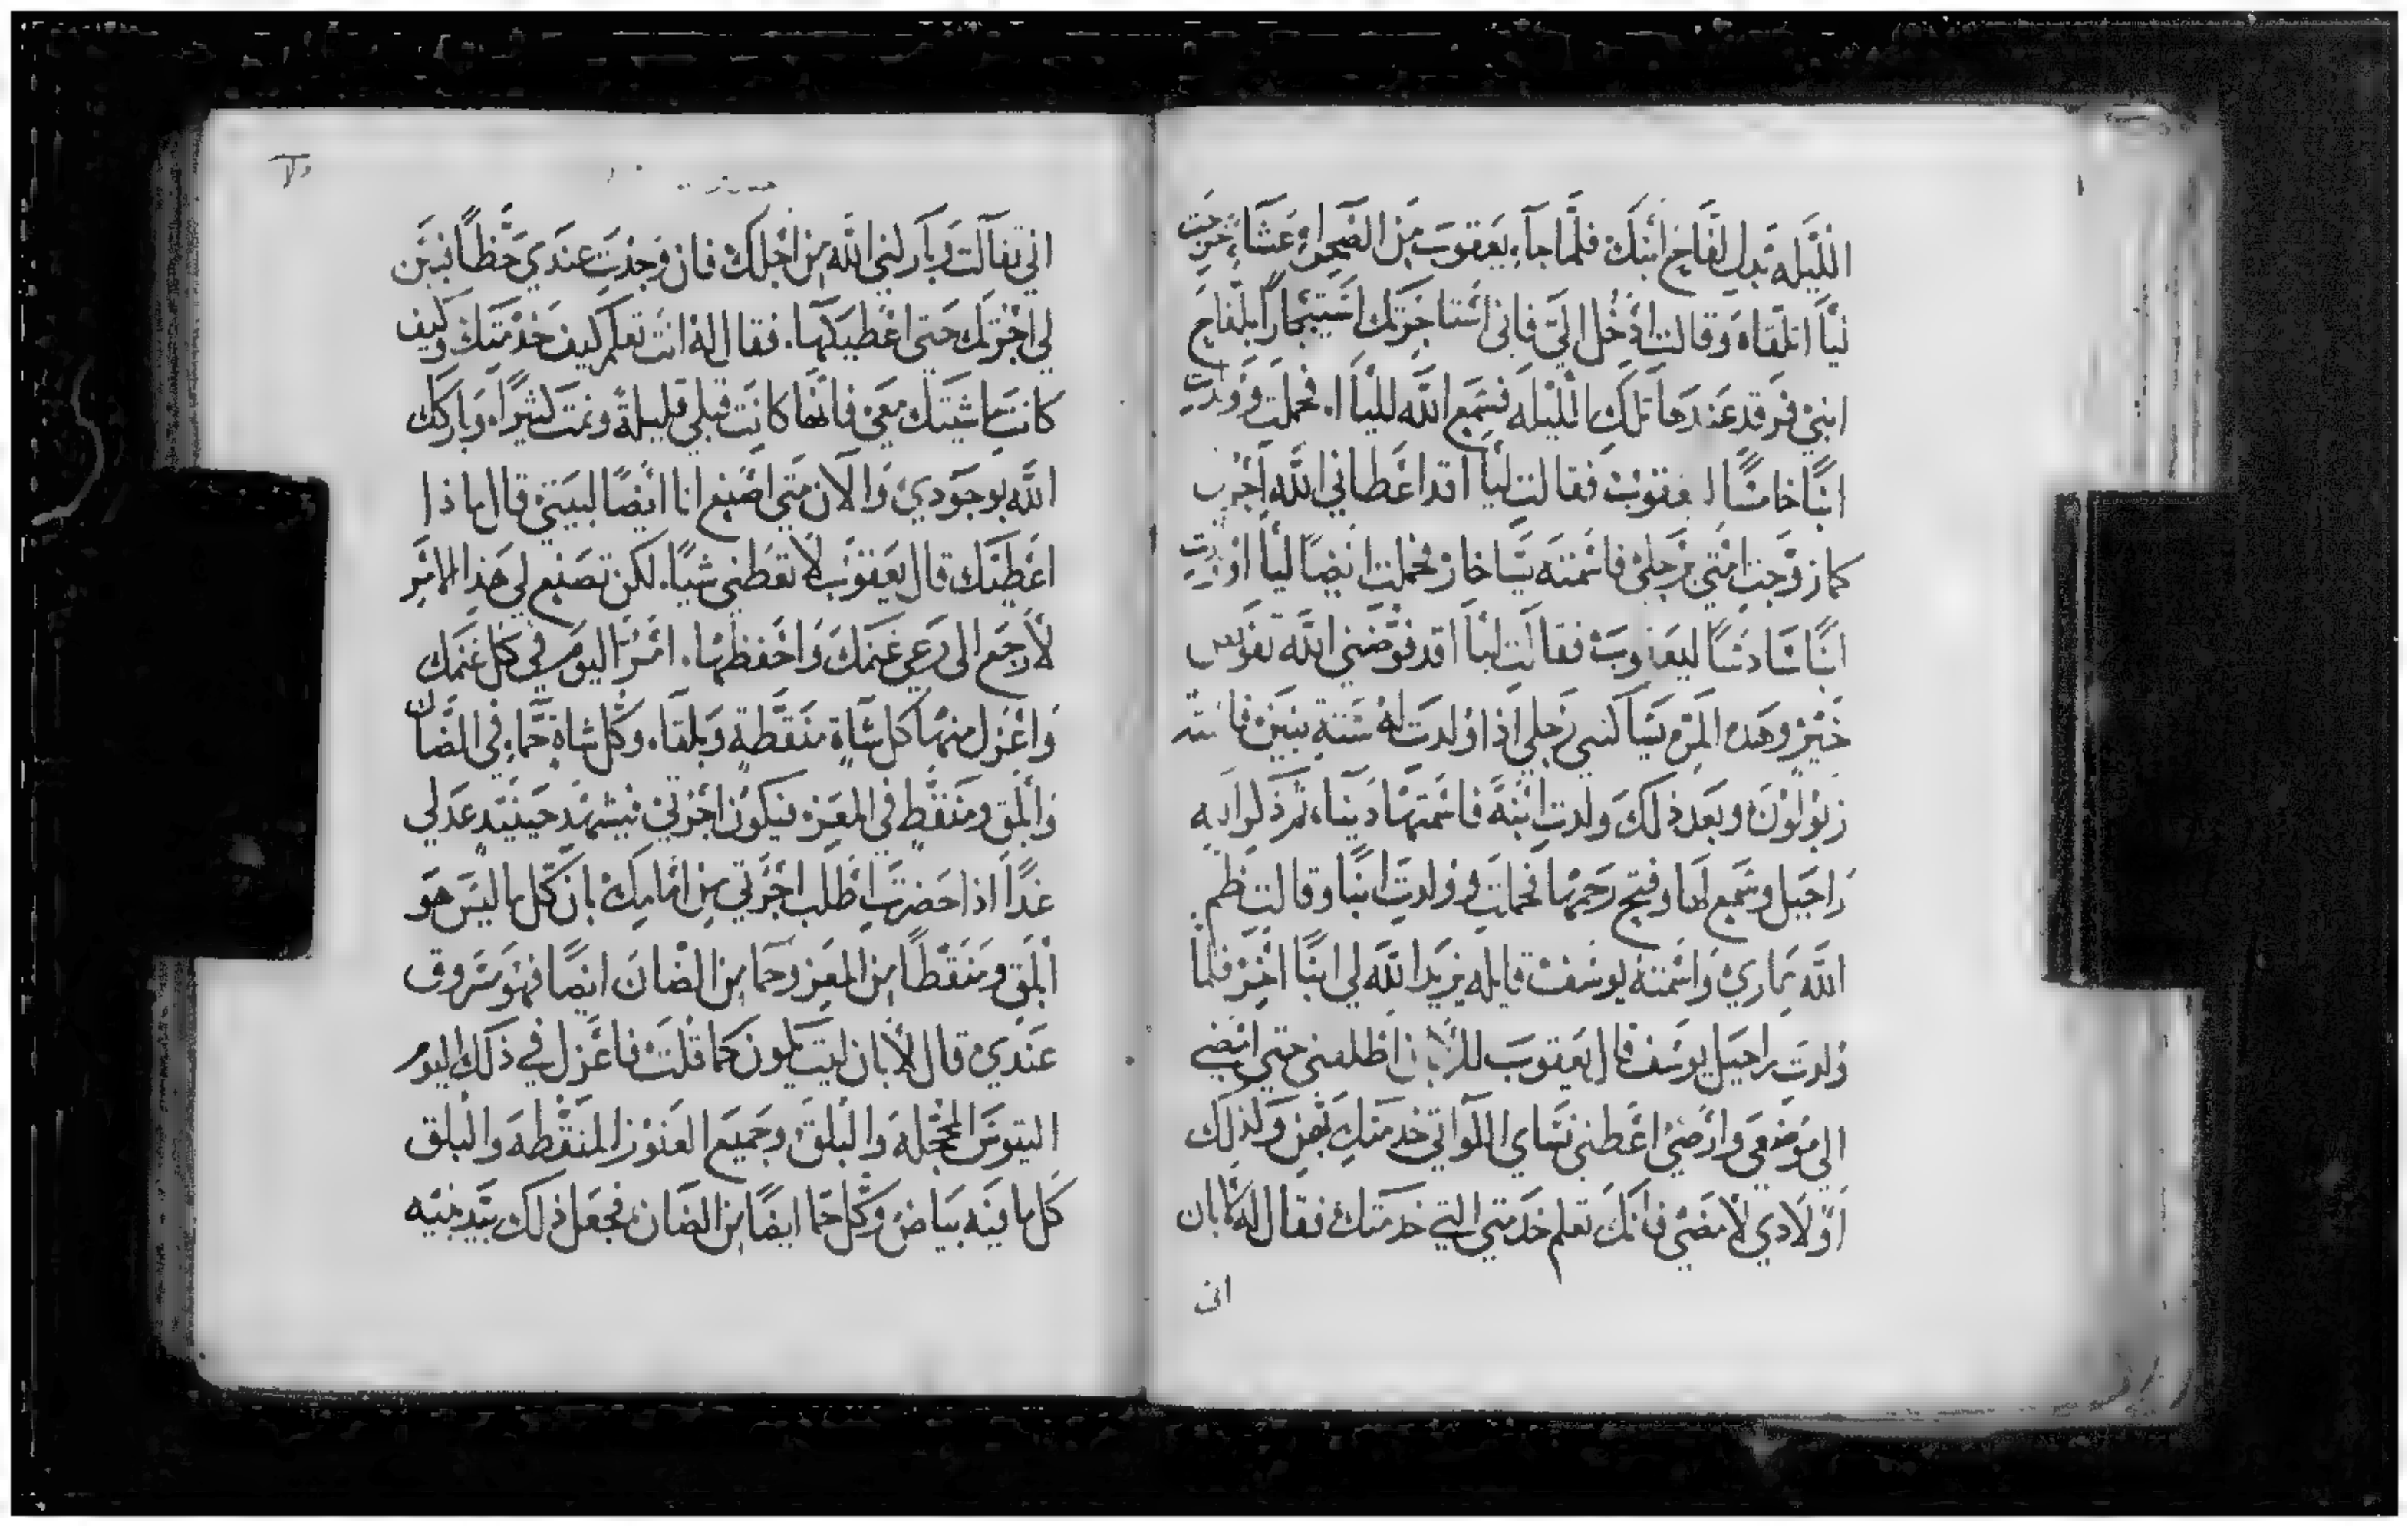 الليله بدل لفاح ابنك فلما جاء يعقوب من الصحراء عشاء خرجت
ليا تلقاه وقالت ادخل الي فاني استاجرتك استيجارا بلفاح
ابني فرقد عندها تلك الليله فسمع الله لليا فحملت وولدت
ابنا خامسا ليعقوب فقالت ليا قد اعطاني الله اجرتي
كما زوجت امتي برجلي فاسمته يساخار فحملت ايضا ليا وولدت
ابنا سادسا ليعقوب فقالت ليا قد فوضني الله تفويض
خير وهذه المره يساكنني رجلي اذا ولدت له ستة بنين فاسمته
زبولون وبعد ذلك ولدت ابنة فاسمتها دينا ثم ذكر الله
راحيل وسمع لها وفتح رحمها فحملت وولدت ابنا وقالت ضم
الله عاري واسمته يوسف قايله يزيد الله لي ابنا اخر فلما
ولدت راحيل يوسف قال يعقوب للابان اطلقني حتي امضي
الي موضعي وارضي اعطني نساي اللواتي خدمتك بهن وكذلك
اولادي لامضي فانك تعلم خدمتي التي خدمتك فقال له لابان
اني
اني تفآلت وبارلني الله من اجلك فان وجدت عندي حظا فبين
لي اجرتك حتي اعطيكها. فقال له انت تعلم كيف خدمتك وكيف
كانت ماشيتك معي فانها كانت قبلي قليلة ونمت كثيرا. وباركك
الله بوجودي والآن متي اصنع انا ايضا لبيتي قال ماذا
اعطيك قال يعقوب لا تعطني شيا. لكن تصنع لي هذا الامر
لارجع الي رعي غنمك واحفظها. امر اليوم في كل غنمك
واعزل منها كل شاة منقطة وبلقاء وكل شاة حماء في الضان
وابلق ومنقط في المعز فيكون اجرتي فيشهد حينيد عدلي
غدا اذا حضرت اطلب اجرتي من امامك بان كل ما ليس هو
ابلق ومنقطا من المعز وحما من الضان ايضا فهو مسروق
عندي قال لابان ليت يكون كما قلت فاعزل في ذلك اليوم
التيوس المحجله والبلق وجميع العنوز المنقطه والبلق
كل ما فيه بياض وكل حما ايضا من الضان فجعل ذلك بيد بنيه